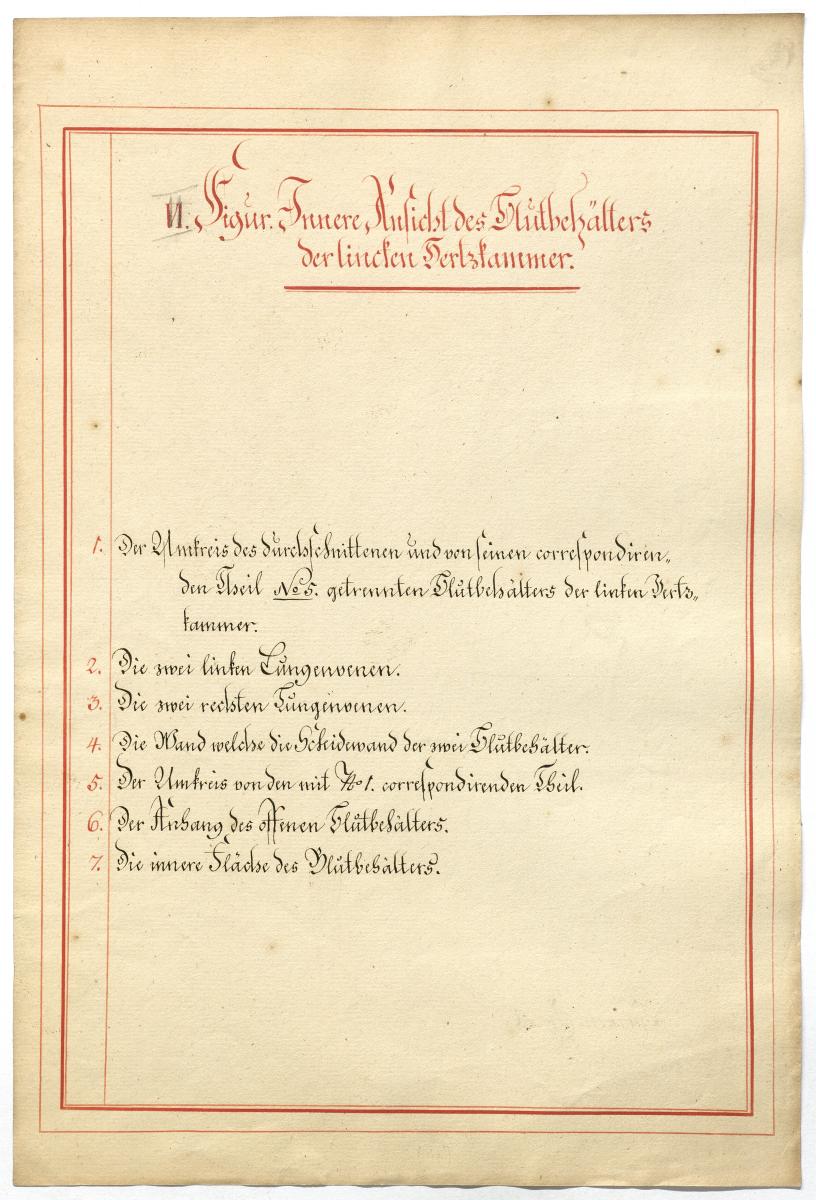 VI. Figur. Innere Ansicht des Blutbehälters
der lincken Hertzkammer.
1. Der Umkreis des durchschnittenen und von seinen correspondiren„
den Theil No 5. getrennten Blutbehälters der linken Hertz„
kammer.
2. Die zwei linken Lungenvenen.
3. Die zwei rechten Lungenvenen.
4. Die Wand welche die Scheidewand der zwei Blutbehälter.
5. Der Umkreis von den mit No 1. correspondirenden Theil.
6. Der Anhang des offenen Blutbehälters.
7. Die innere Fläche des Blutbehälters.